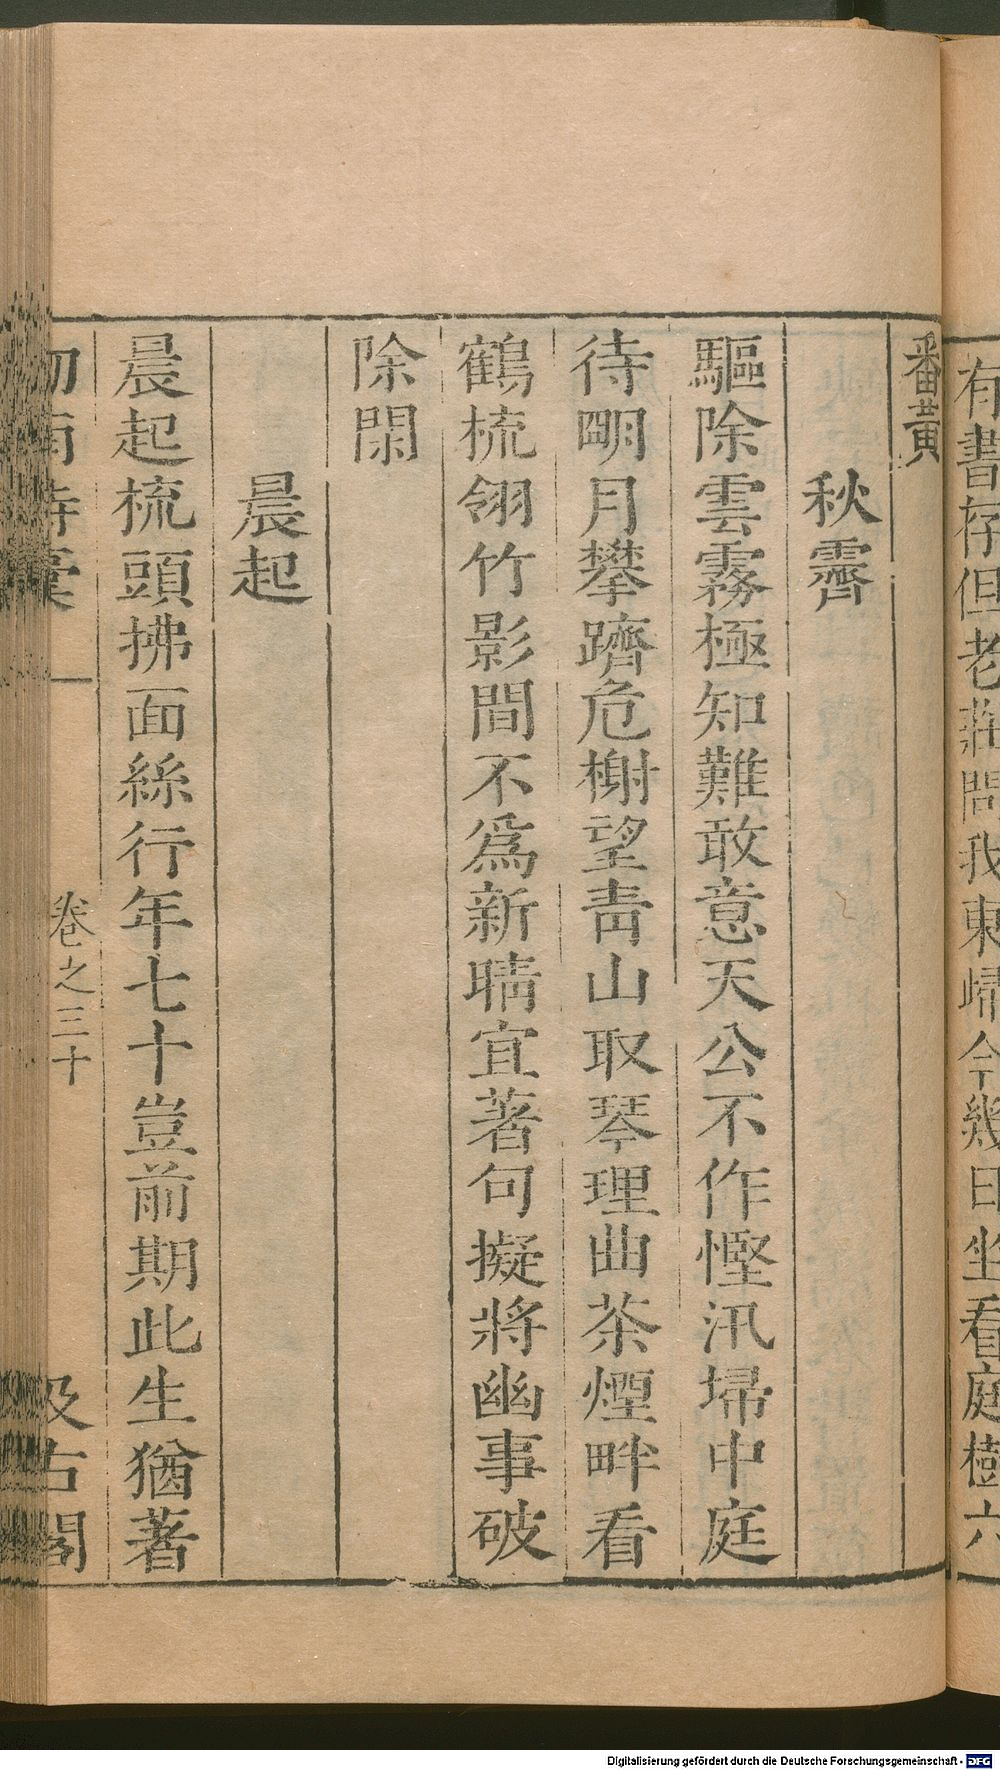 有書存但老莊問我東歸今幾日坐看庭樹六
番黃
秋霽
驅除雲霧極知難敢意天公不作慳汛埽中庭
待朙月攀躋危榭望靑山取琴理曲茶煙畔看
鶴梳翎竹影間不爲新晴宜著句擬將幽事破
除閑
晨起
晨起梳頭拂面絲行年七十豈前期此生猶著
南詩 卷之三十 汲古閣
Digitalisierung gefördert durch die Deutsche Forschungsgemeinschaft - DFG